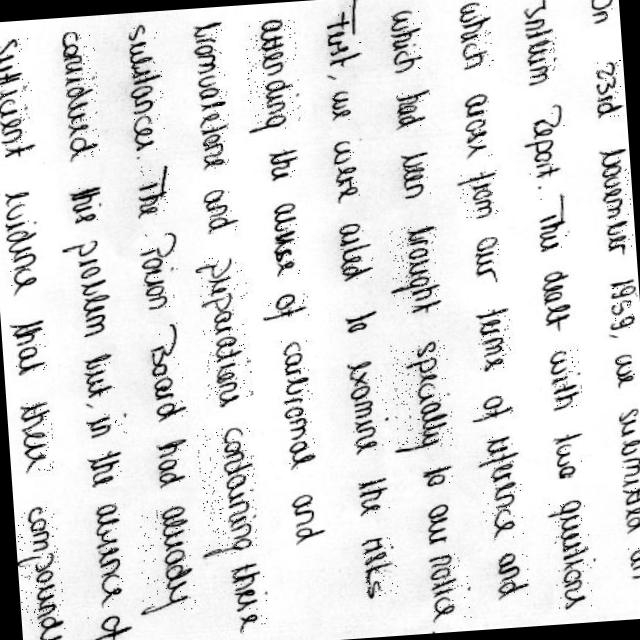 On 23rd November 1959, we submitted an
Interim Report. This dealt with two questions
which arose from our terms of reference and
which had been brought specially to our notice
First, we were asked to examine the risks
attending the abuse of carbromal and
bromvaletone and preparations containing these
substances. The Poison Board had already
considered the problem but, in the absence of
sufficient evidence that these compounds